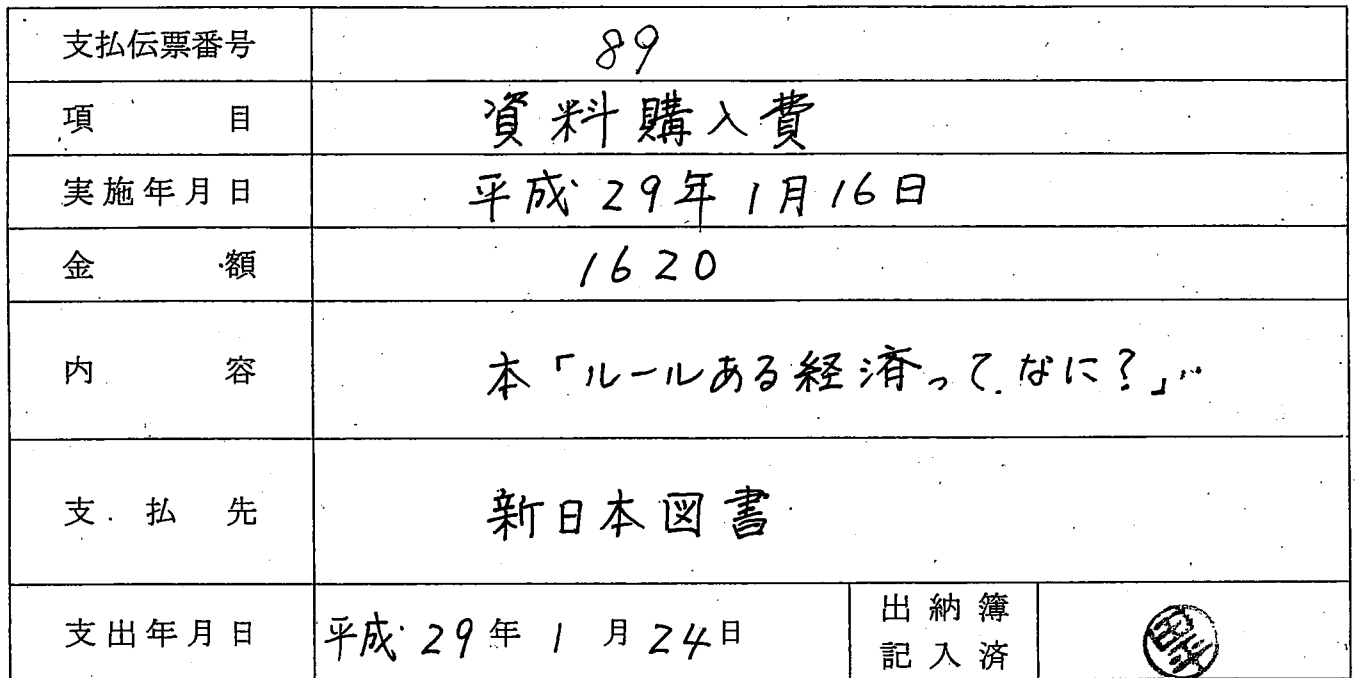 支払伝票番号 89
項目 資料購入費
実施年月日 平成29年1月16日
金額 1620
内容 本「ルールある経済って、なに?」
支払先 新日本図書
支出年月日 平成29年1月24日 出納簿
記入済